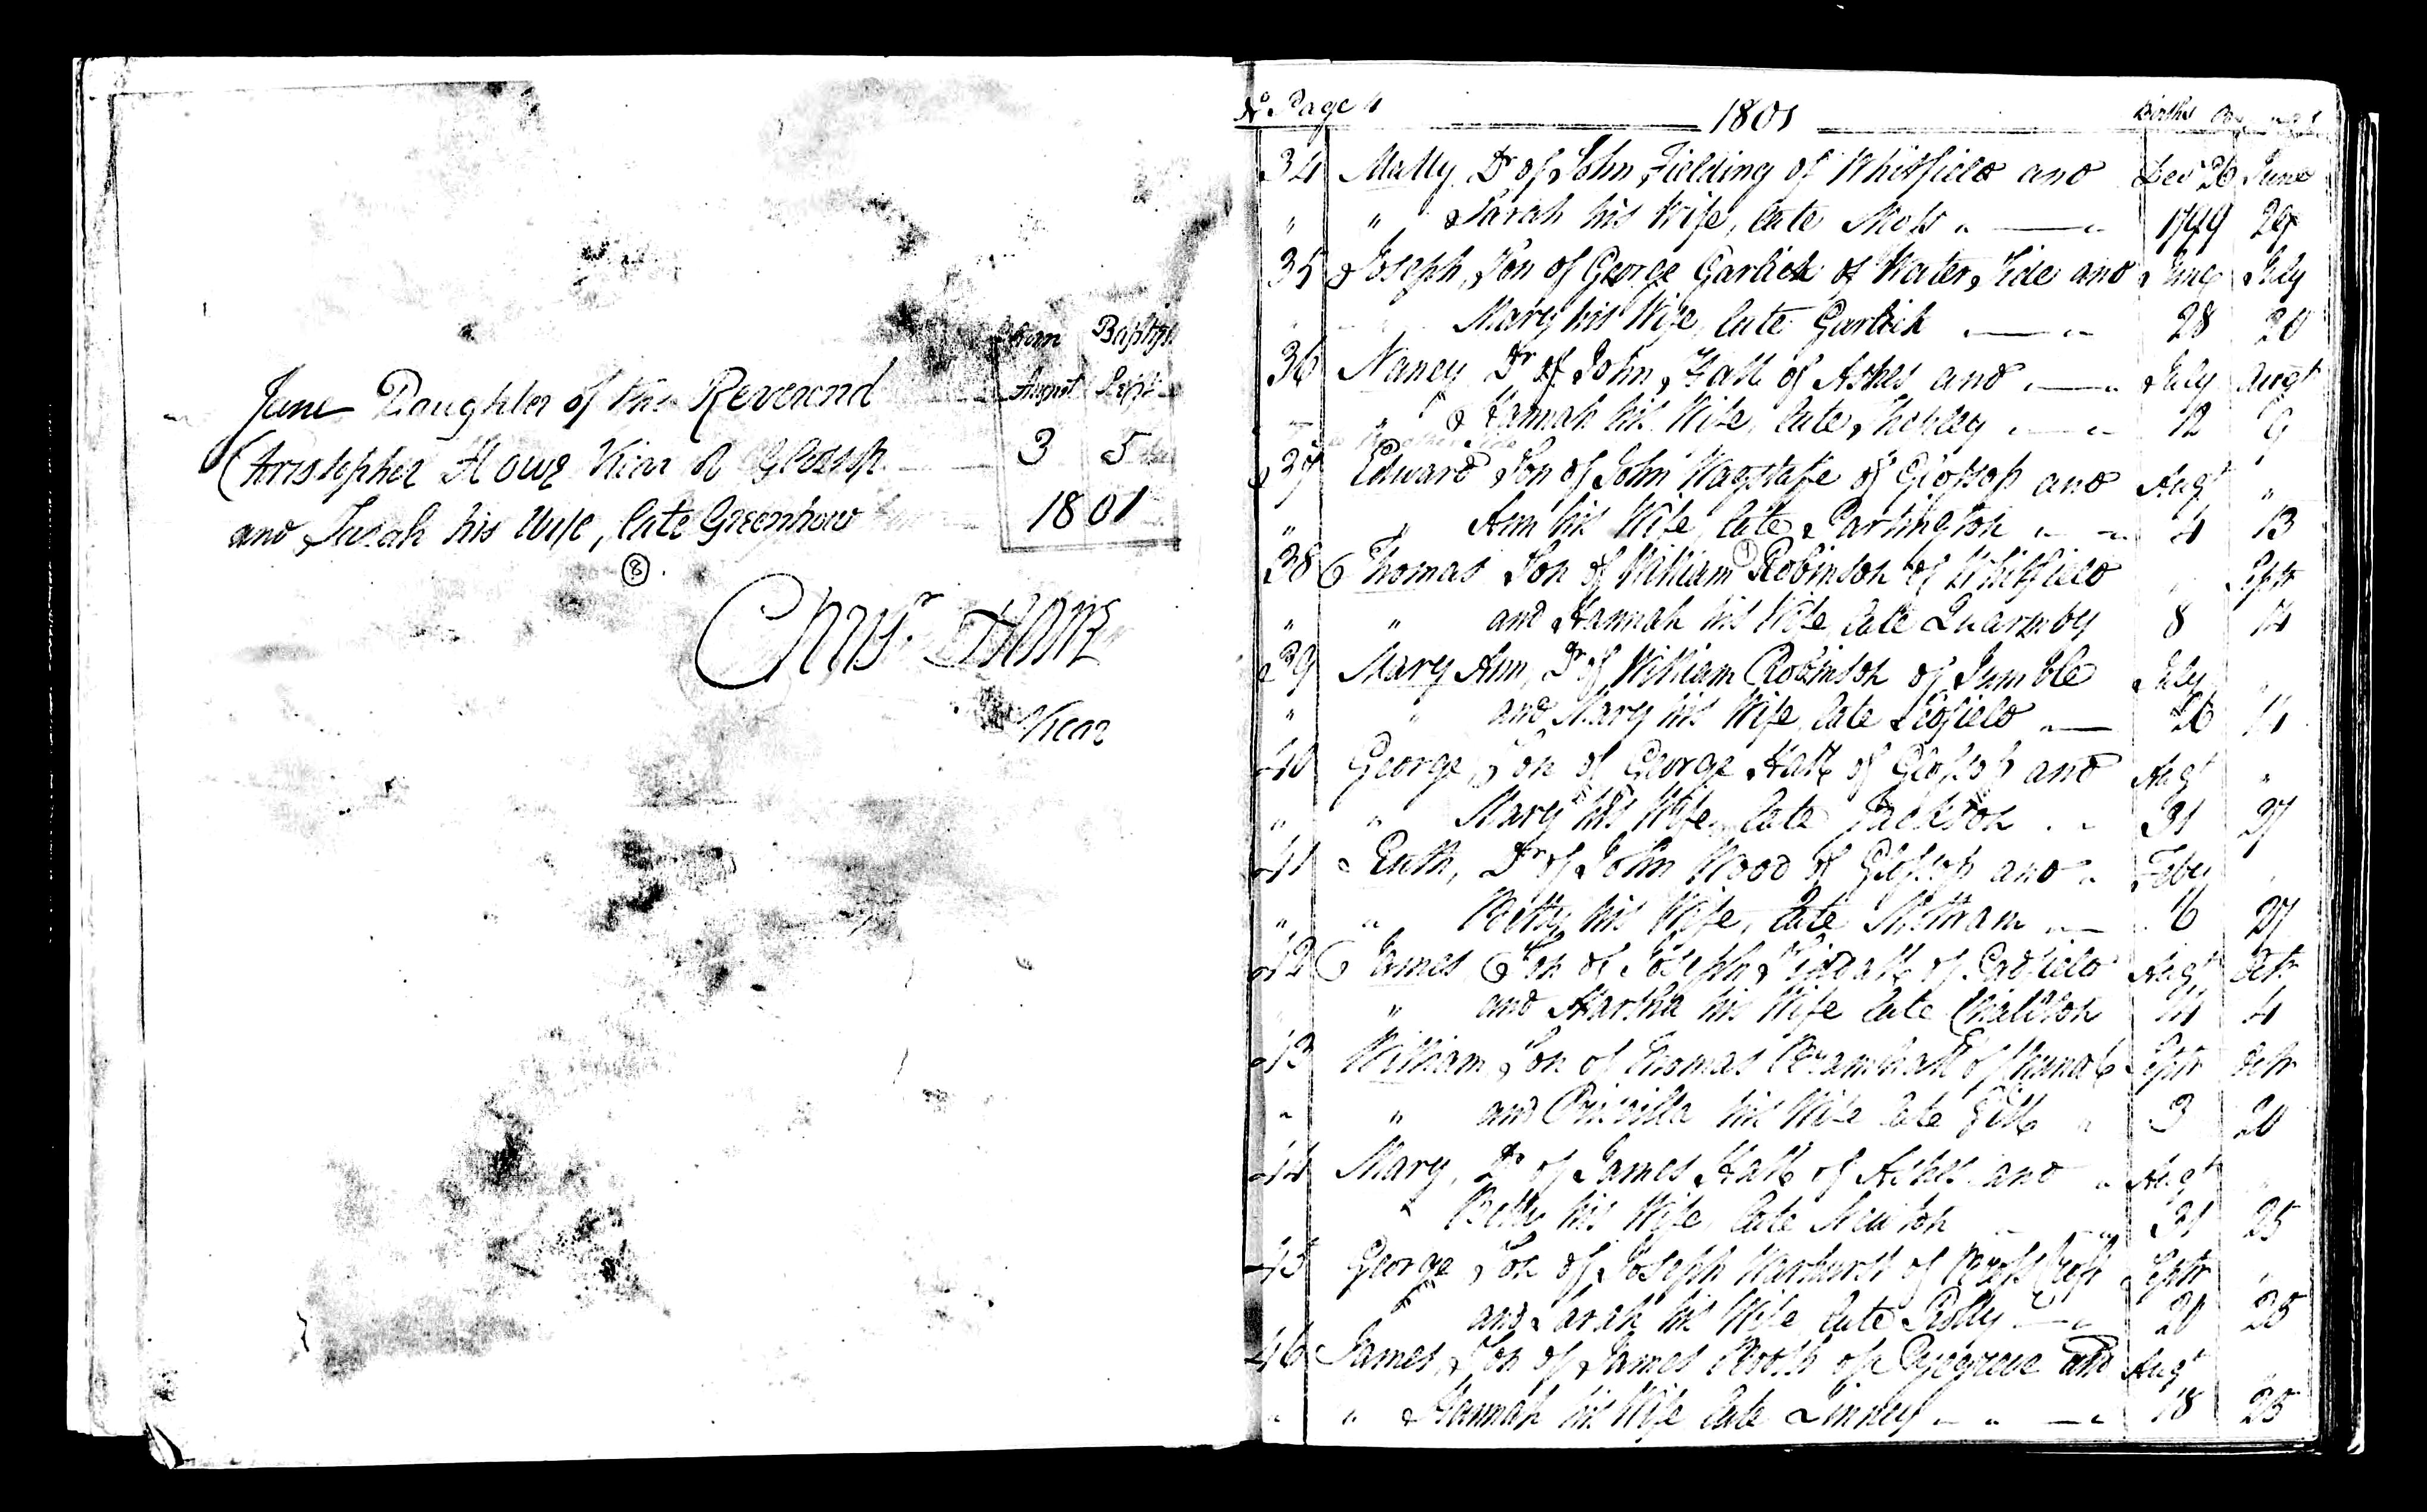 Born Baptiz
August Sept
Jane Daughter of the Reverend
Christopher Howe Vicar of Glossop 3 5
and Sarah his Wife, late Greenhow 1801
8
Chrisr Howe
Vicar
No Page 4 1801 Births
34 Mally Dr of John Fielding of Whitfield and Decr 26 June
" " Sarah his Wife, late " 1799 29
35 Joseph, Son of George Garlick of Water Side and June July
Mary his Wife, late Garlick 28 20
36 Nancy Dr of John Hall of Ashes and July Augt
" Hannah his Wife, late 12 9
37 Edward Son of John Wagstaffe of Glossop and Augt "
" " Ann his Wife, late Partington 4 13
38 Thomas Son of William Robinson of Whitfield " Septr
1
" " and Hannah his Wife, late Quarmby 8 14
39 Mary Ann, Dr of William Robinson of Jumble July "
" " and Mary his Wife, late 26 14
40 George, Son of George Hall of Glossop and Augt "
" " Mary his Wife, late Jackson 31 27
41 Ruth, Dr of John Wood of Glossop and Feby "
" " Betty his Wife, late Mottram 6 27
42 James Son of Joseph of Padfield Augt Octr
" and Martha his Wife late 14 4
43 William, Son of Thomas Bramhall of Septr Octr
" " and Priscilla his Wife late 3 20
44 Mary, Dr of James Hall of Ashes and Augt "
" Betty his Wife, late Newton 31 25
45 George Son of Joseph Warhurst of Septr "
" and Sarah his Wife, late 20 25
46 James, Son of James Booth of and Augt
" " Hannah his Wife late Linney 18 25